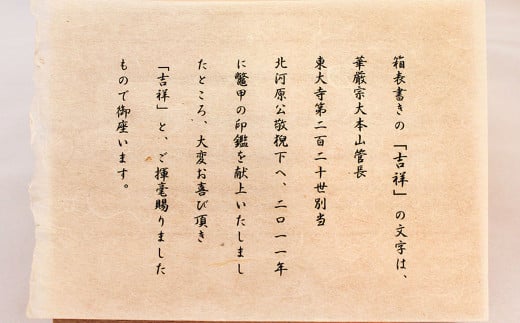 箱表書きの「吉祥」の文字は、
華厳宗大本山管長
東大寺第二百二十世別当
北河原公敬猊下へ、二〇一一年
に鼈甲の印鑑を献上いたしまし
たところ、大変お喜び頂き
「吉祥」と、ご揮毫賜りました
もので御座います。